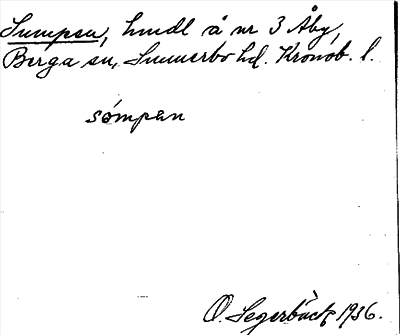 Sumpen, hmdl å nr 3 Åby,
Berga sn, Sunnerbo hd. Kronob. l.
sómpan
O. Segerbäck 1936.